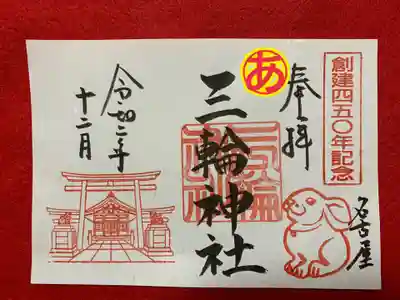 創建四五〇年記念
名古屋
奉拝
あ
三輪神社
三輪神社
令和二年
十二月